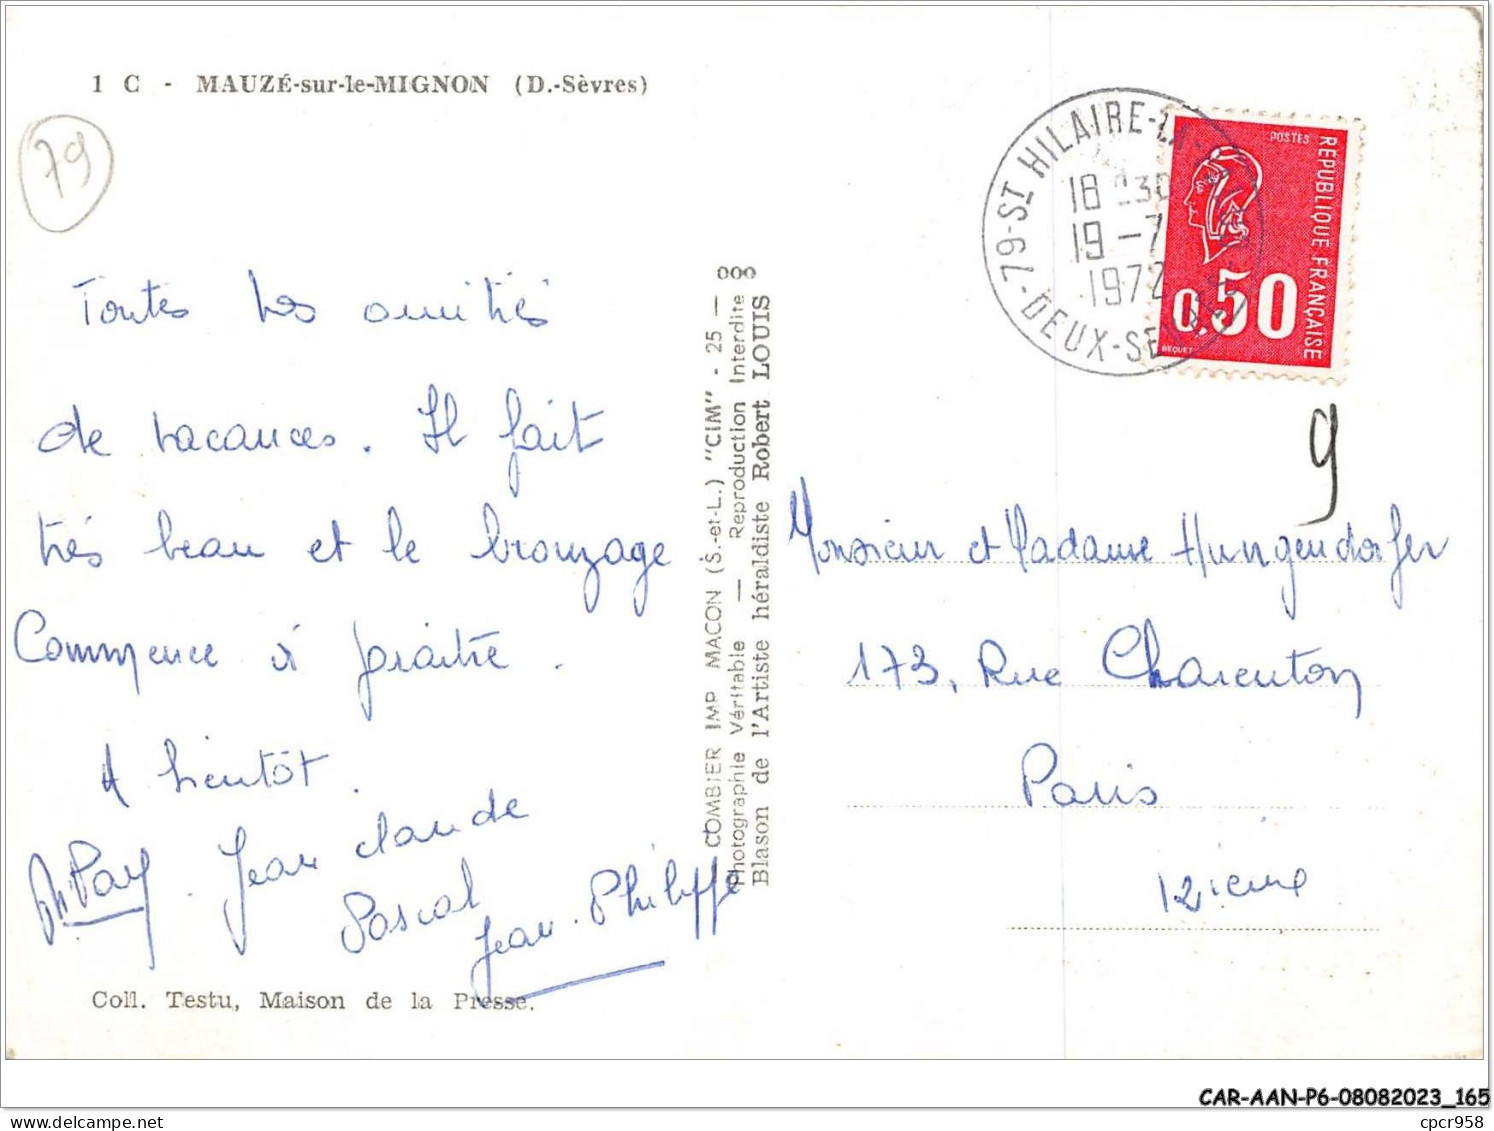 1 C - MAUZÉ-sur-le-MIGNON (D.-Sèvres)
79
Toutes nos amitiés
de vacances. Il fait
très beau et le bronzage
Commence à paraitre.
A bientôt.
Jean claude
Pascal
Jean-Philippe
Coll. Testu, Maison de la Presse.
COMBIER IMP MACON (S.-et-L.) "CIM" - 25 — 000
Photographie Véritable — Reproduction Interdite
Blason de l'Artiste héraldiste Robert LOUIS
79-ST HILAIRE-LA-
DEUX-SEVRES
18 H30
19-7
1972
POSTES
REPUBLIQUE FRANÇAISE
0,50
BEQUET
9
Monsieur et Madame Hungendorfer
173, Rue Charenton
Paris
12ieme
CAR-AAN-P6-08082023_165
delcampe.net
cpcr958